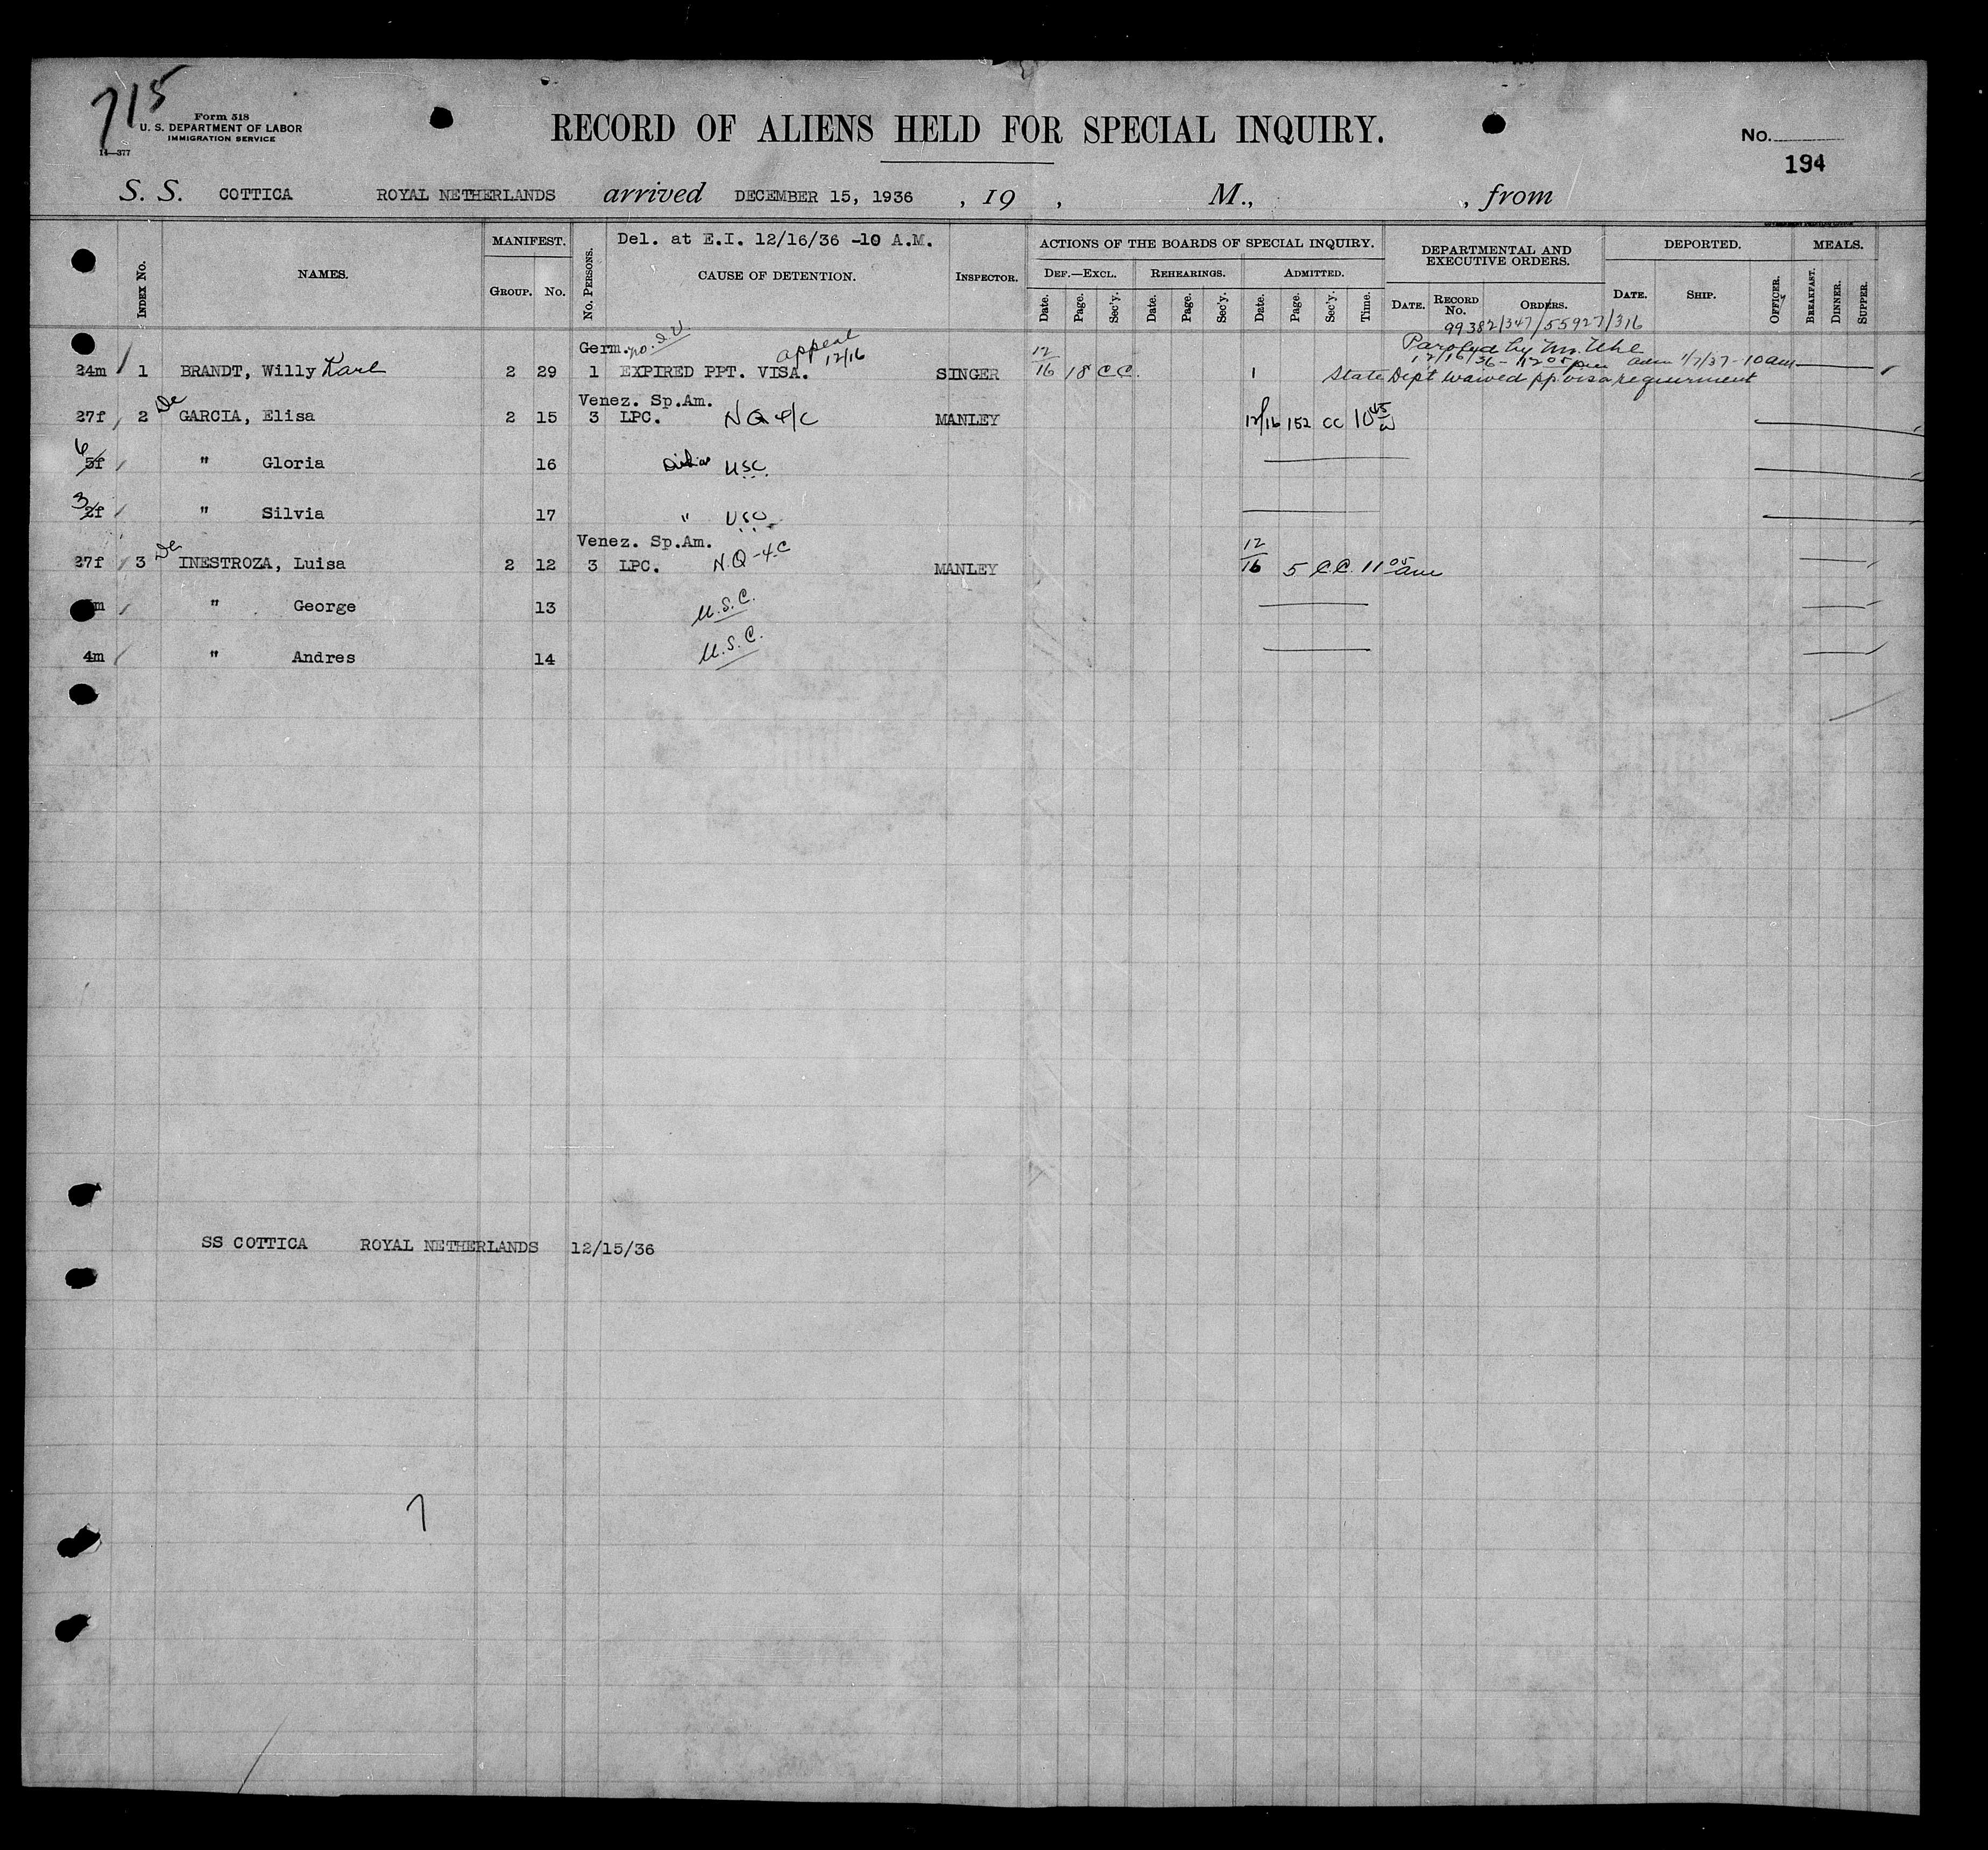 715
Form 518
U. S. DEPARTMENT OF LABOR
IMMIGRATION SERVICE
14—377
RECORD OF ALIENS HELD FOR SPECIAL INQUIRY.
No.
194
S. S. COTTICA ROYAL NETHERLANDS arrived DECEMBER 15, 1936 , 19 , M., , from
INDEX No. NAMES. MANIFEST. GROUP. No. No. PERSONS. Del. at E.I. 12/16/36 -10 A.M. CAUSE OF DETENTION. INSPECTOR. ACTIONS OF THE BOARDS OF SPECIAL INQUIRY. DEPARTMENTAL AND EXECUTIVE ORDERS. DEPORTED. MEALS.
DEF.—EXCL. REHEARINGS. ADMITTED.
Date. Page. Sec'y. Date. Page. Sec'y. Date. Page. Sec'y. Time. DATE. RECORD No. ORDERS. DATE. SHIP. OFFICER. BREAKFAST. DINNER. SUPPER.
99382/347/55927/316
Germ. no. I.V. appeal 12/16 Paroled by Mr. Uhl
12/16/36 - 12 05 pm adm 1/7/37 - 10 am
24m 1 BRANDT, Willy Karl 2 29 1 EXPIRED PPT. VISA. SINGER 12/16 18 C C. 1 State Dept waived pp. visa requirement
Venez. Sp.Am.
27f 2 De GARCIA, Elisa 2 15 3 LPC. NQ 4/C MANLEY 12/16 152 CC 10 45
6 5f " Gloria 16 USC.
3 2f " Silvia 17 " USC
Venez. Sp.Am.
27f 3 De INESTROZA, Luisa 2 12 3 LPC. N.Q-4-C MANLEY 12/16 5 C.C. 11 05 am
m " George 13 U.S.C.
4m " Andres 14 U.S.C.
SS COTTICA ROYAL NETHERLANDS 12/15/36
7